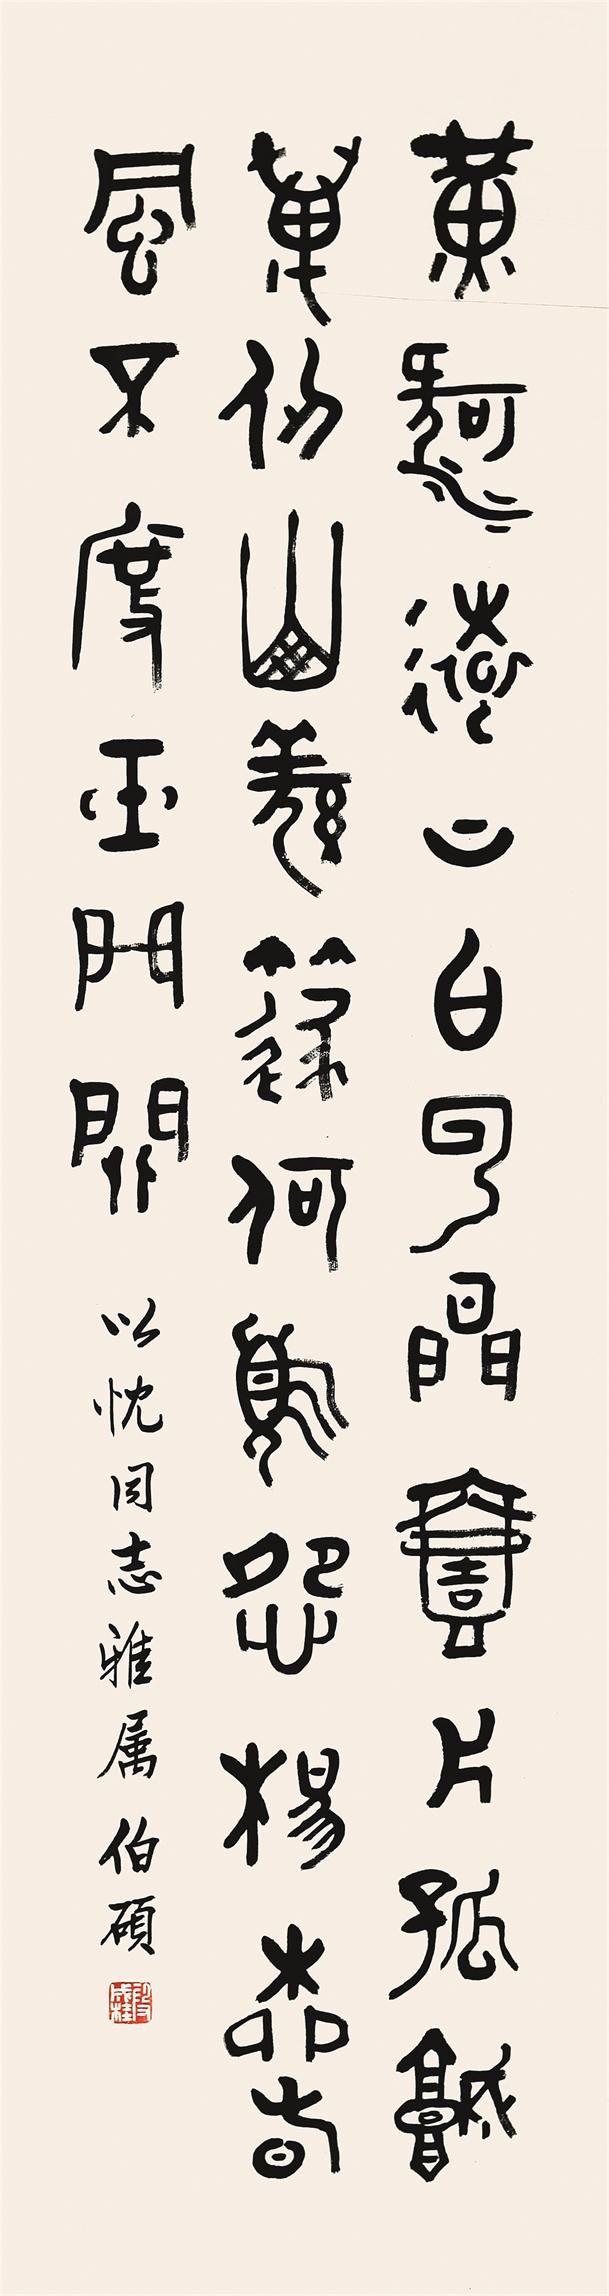 黃河遠上白云間壹片孤城
萬仞山羌笛何須怨楊柳春
風不度玉門關
以忱同志雅属 伯碩
段成桂